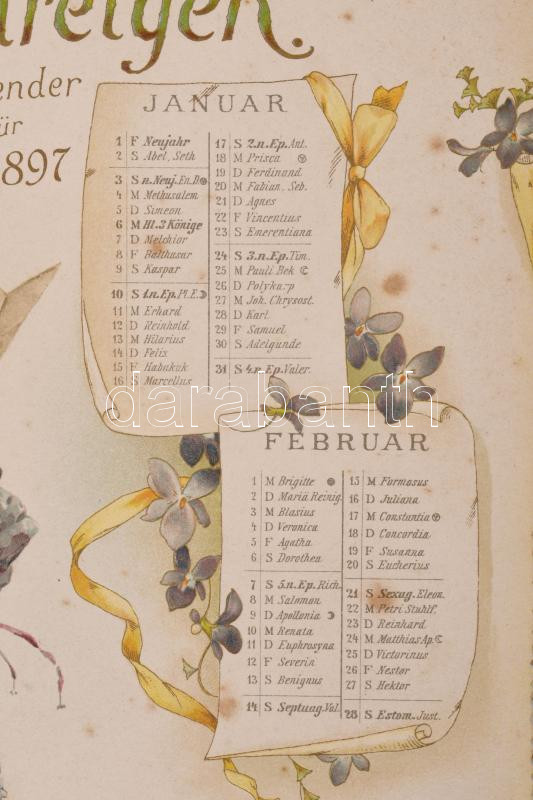 ender
für
1897
JANUAR
1 F Neujahr
2 S Abel, Seth
3 S n. Neuj. En. D.
4 M Methusalem
5 D Simeon
6 M Hl. 3 Könige
7 D Melchior
8 F Balthasar
9 S Kaspar
10 S 1. n. Ep. Pl. E.
11 M Erhard
12 D Reinhold
13 M Hilarius
14 D Felix
15 F Habakuk
16 S Marcellus
17 S 2. n. Ep. Ant.
18 M Prisca
19 D Ferdinand
20 M Fabian. Seb.
21 D Agnes
22 F Vincentius
23 S Emerentiana
24 S 3. n. Ep. Tim.
25 M Pauli Bek
26 D Polykarp
27 M Joh. Chrysost.
28 D Karl
29 F Samuel
30 S Adelgunde
31 S 4. n. Ep. Valer.
darabanth
FEBRUAR
1 M Brigitte
2 D Mariä Reinig.
3 M Blasius
4 D Veronica
5 F Agatha
6 S Dorothea
7 S 5. n. Ep. Rich.
8 M Salomon
9 D Apollonia
10 M Renata
11 D Euphrosyna
12 F Severin
13 S Benignus
14 S Septuag. Val.
15 M Formosus
16 D Juliana
17 M Constantia
18 D Concordia
19 F Susanna
20 S Eucherius
21 S Sexag. Eleon.
22 M Petri Stuhlf.
23 D Reinhard
24 M Matthias Ap.
25 D Victorinus
26 F Nestor
27 S Hektor
28 S Estom. Just.